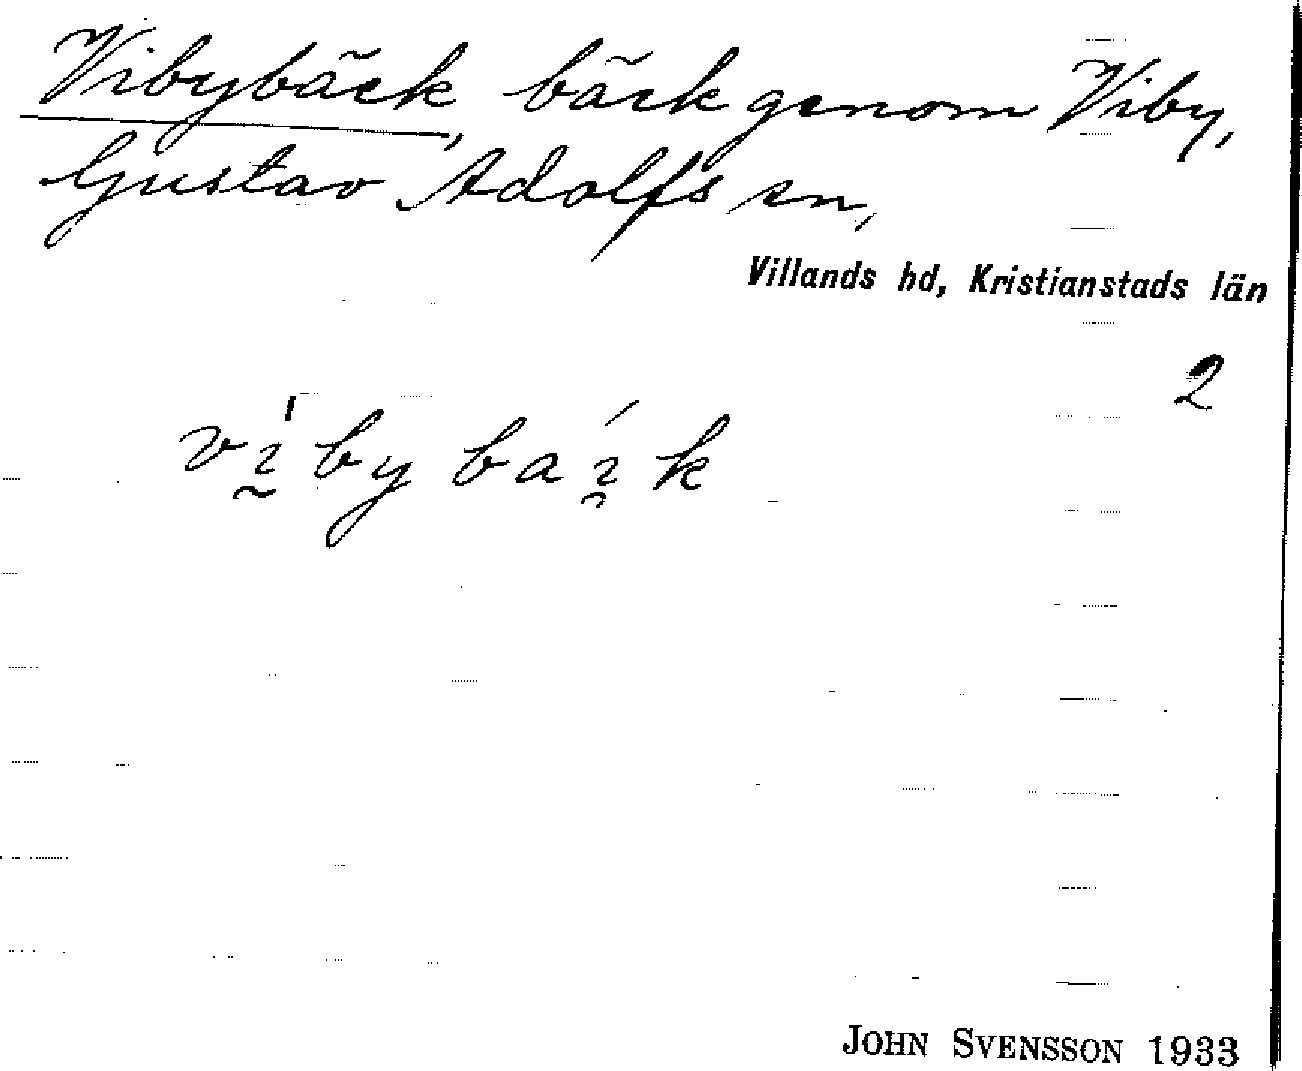 Vibybäck, bäck genom Viby,
Gustav Adolfs sn,
Villands hd, Kristianstads län
2
vı̰́by baı̯́k
JOHN SVENSSON 1933